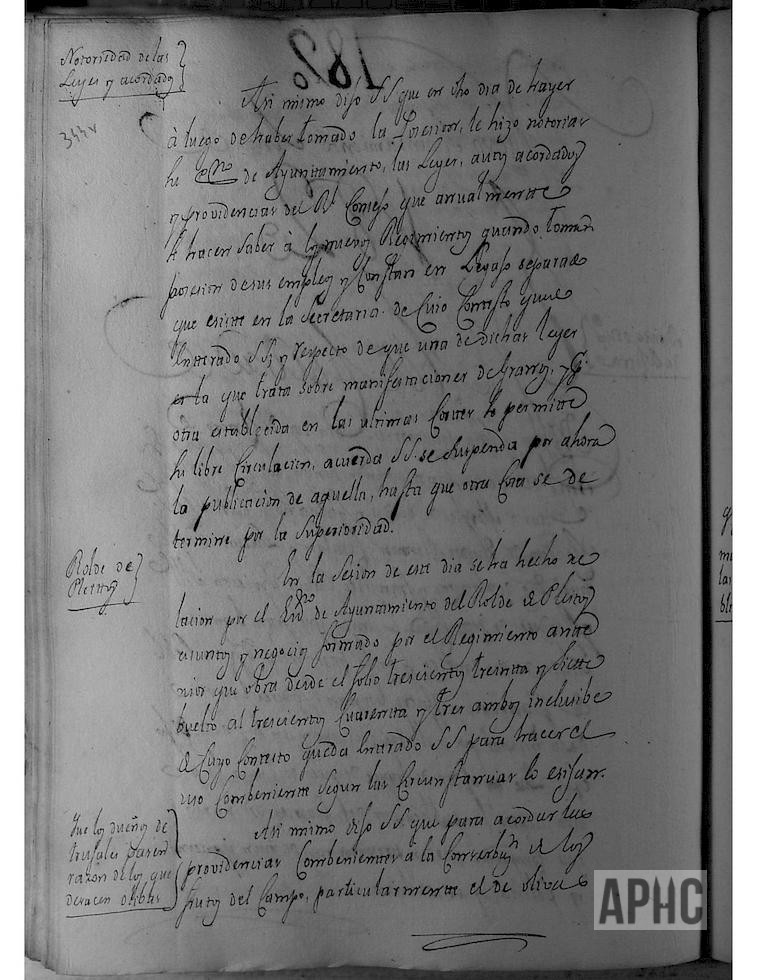 Notoriedad de las
Leyes y acordados
344v
Asi mismo dijo SS que en dho dia de hayer
à luego de haber tomado la Posesion, le hizo notorias
de Ayuntamiento, las Leyes, autos acordados
y providencias del Rl Consejo que anualmentte
se hacen saber à los nuevos Regimientos quando toman
posesion de sus empleos y constan en Legajo separado
que existte en la Secretaria. de Cuio Contesto quedo
Intterado SS; y respecto de que una de dichas leyes
es la que trata sobre manifestaciones de Granos, y q.
otra establecida en las ultimas Cortes se permitte
su libre Circulacion, acuerda SS. se suspenda por ahora
la publicacion de aquella, hasta que otra Cosa se de
termine por la Superioridad.
Rolde de
Pleittos
En la Sesion de este dia se ha hecho re
lacion por el Srio de Ayuntamiento del Rolde de Pleitos
asuntos y negocios formado por el Regimiento antte
rior que obra desde el folio trescientos treintta y siette
buelto al trescientos Cuarentta y tres ambos inclusibe
de Cuyo Contesto queda Intterado SS para hacer el
uso Combenientte segun las Circunstancias lo esijan.
Que los dueños de
trujales pasen
razon de los que
deracen olibas
Asi mismo dijo SS. que para acordar las
providencias Combenienttes a la Conserbon de los
frutos del Campo, particularmentte el de olivas
APHC